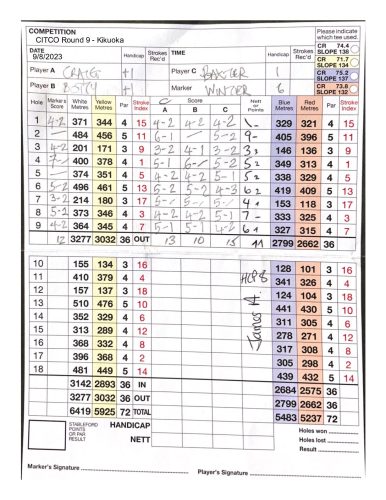 COMPETITION
CITCO Round 9 - Kikuoka
Please indicate which tee used.
DATE
9/8/2023
Handicap Strokes Rec'd TIME Handicap Strokes Rec'd
CR 74.4 SLOPE 138
CR 71.7 SLOPE 134
CR 75.2 SLOPE 137
CR 73.8 SLOPE 132
Player A CRAIG +1 Player C BAXTER 1
Player B +1 Marker WINTER 6
Hole Marker's Score White Metres Yellow Metres Par Stroke Index Score A B C Nett or Points Blue Metres Red Metres Par Stroke Index
1 4-2 371 344 4 15 4-2 4-2 4-2 329 321 4 15
2 484 456 5 11 6-1 5-2 405 396 5 11
3 4-2 201 171 3 9 3-2 4-1 3-2 146 136 3 9
4 400 378 4 1 5-1 5-2 349 313 4 1
5 374 351 4 5 4-2 4-2 5-1 338 329 4 5
6 5-2 496 461 5 13 5-2 5-2 4-3 419 409 5 13
7 3-2 214 180 3 17 153 118 3 17
8 5-2 373 346 4 3 4-2 4-2 5-1 333 325 4 3
9 4-2 364 345 4 7 5-1 327 315 4 7
12 3277 3032 36 OUT 13 10 15 2799 2662 36
10 155 134 3 16 128 101 3 16
11 410 379 4 4 341 326 4 4
12 157 137 3 18 124 104 3 18
13 510 476 5 10 441 430 5 10
14 352 329 4 6 311 305 4 6
15 313 289 4 12 278 271 4 12
16 368 332 4 8 317 308 4 8
17 396 368 4 2 305 298 4 2
18 481 449 5 14 439 432 5 14
James A. HCP 8
3142 2893 36 IN 2684 2575 36
3277 3032 36 OUT 2799 2662 36
6419 5925 72 TOTAL 5483 5237 72
STABLEFORD POINTS OR PAR RESULT
HANDICAP
NETT
Holes won
Holes lost
Result
Marker's Signature
Player's Signature